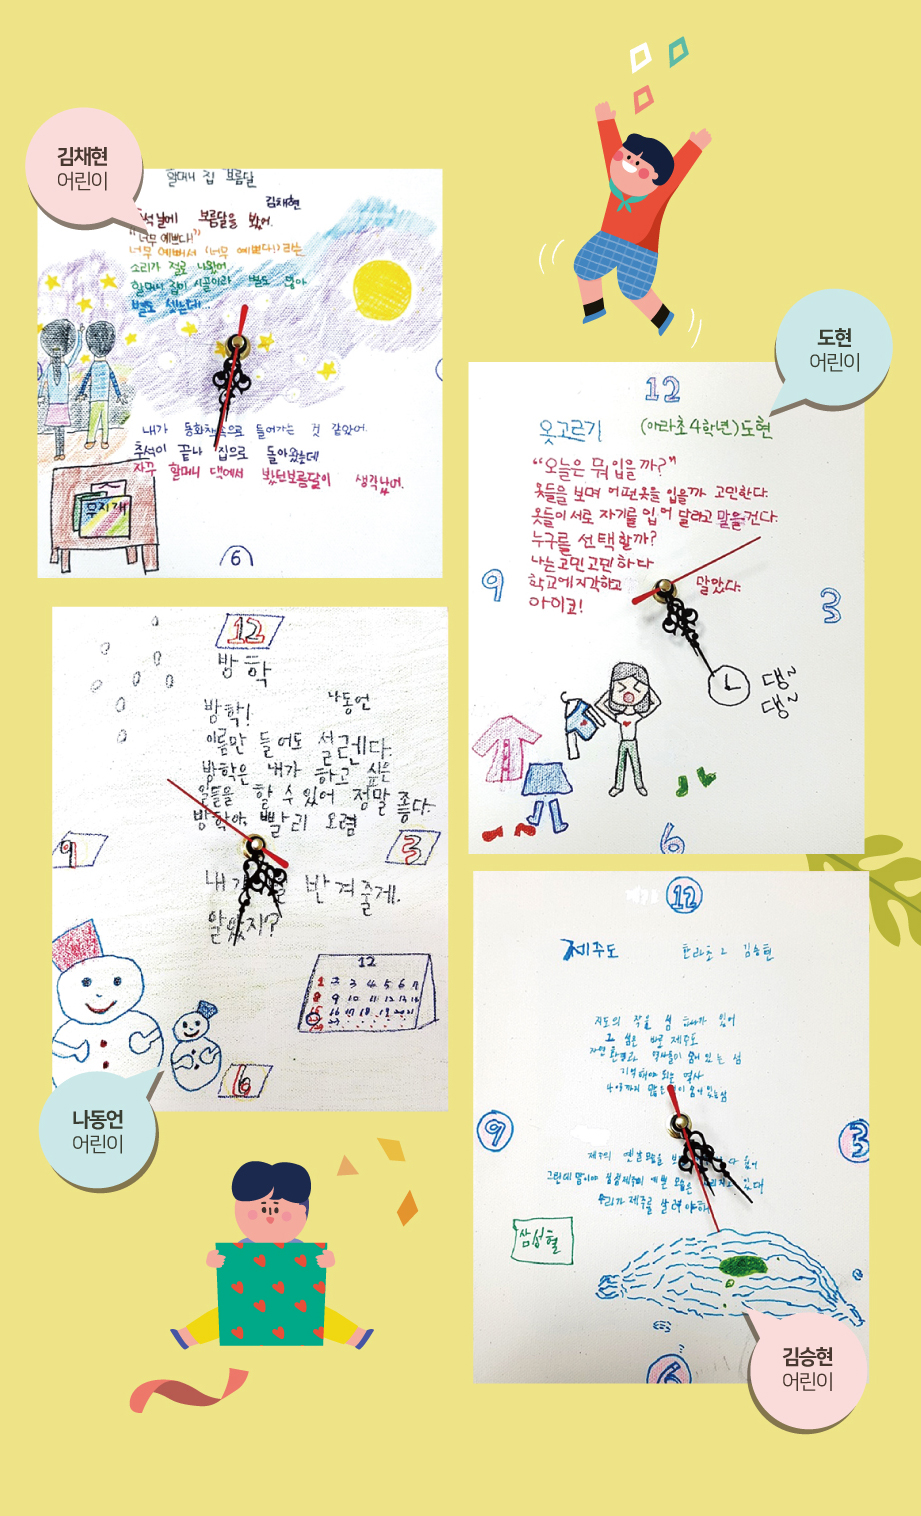 김채현
어린이
할머니 집 보름달
김채현
추석날에 보름달을 봤어.
"너무 예쁘다!"
너무 예뻐서 (너무 예쁘다!) 라는
소리가 절로 나왔어.
할머니 집이 시골이라 별도 많아
별도 셌는데...
내가 동화책 속으로 들어가는 것 같았어.
추석이 끝나 집으로 돌아왔는데
자꾸 할머니 댁에서 봤던 보름달이 생각났어.
무지개
6
도현
어린이
12
옷고르기 (아라초4학년)도현
"오늘은 뭐 입을까?"
옷들을 보며 어떤옷을 입을까 고민한다.
옷들이 서로 자기를 입어 달라고 말을 건다.
누구를 선택할까?
나는 고민고민하다
학교에 지각하고 말았다.
아이코!
9
3
댕~
댕~
6
12
방학
나동언
방학!
이름만 들어도 설렌다.
방학은 내가 하고 싶은
일들을 할 수 있어 정말 좋다.
방학아, 빨리 오렴
9
3
내가 반겨줄게.
알았지?
12
1 2 3 4 5 6 7
8 9 10 11 12 13 14
6
나동언
어린이
12
제주도 한라초 2 김승현
지도의 작은 섬 하나가 있어
그 섬은 바로 제주도
자연환경과 역사들이 숨어 있는 섬
기억해야 되는 역사
9
3
제주의 옛날 모습을
그런데 말이야
우리가 제주를 살려야해
삼성혈
6
김승현
어린이